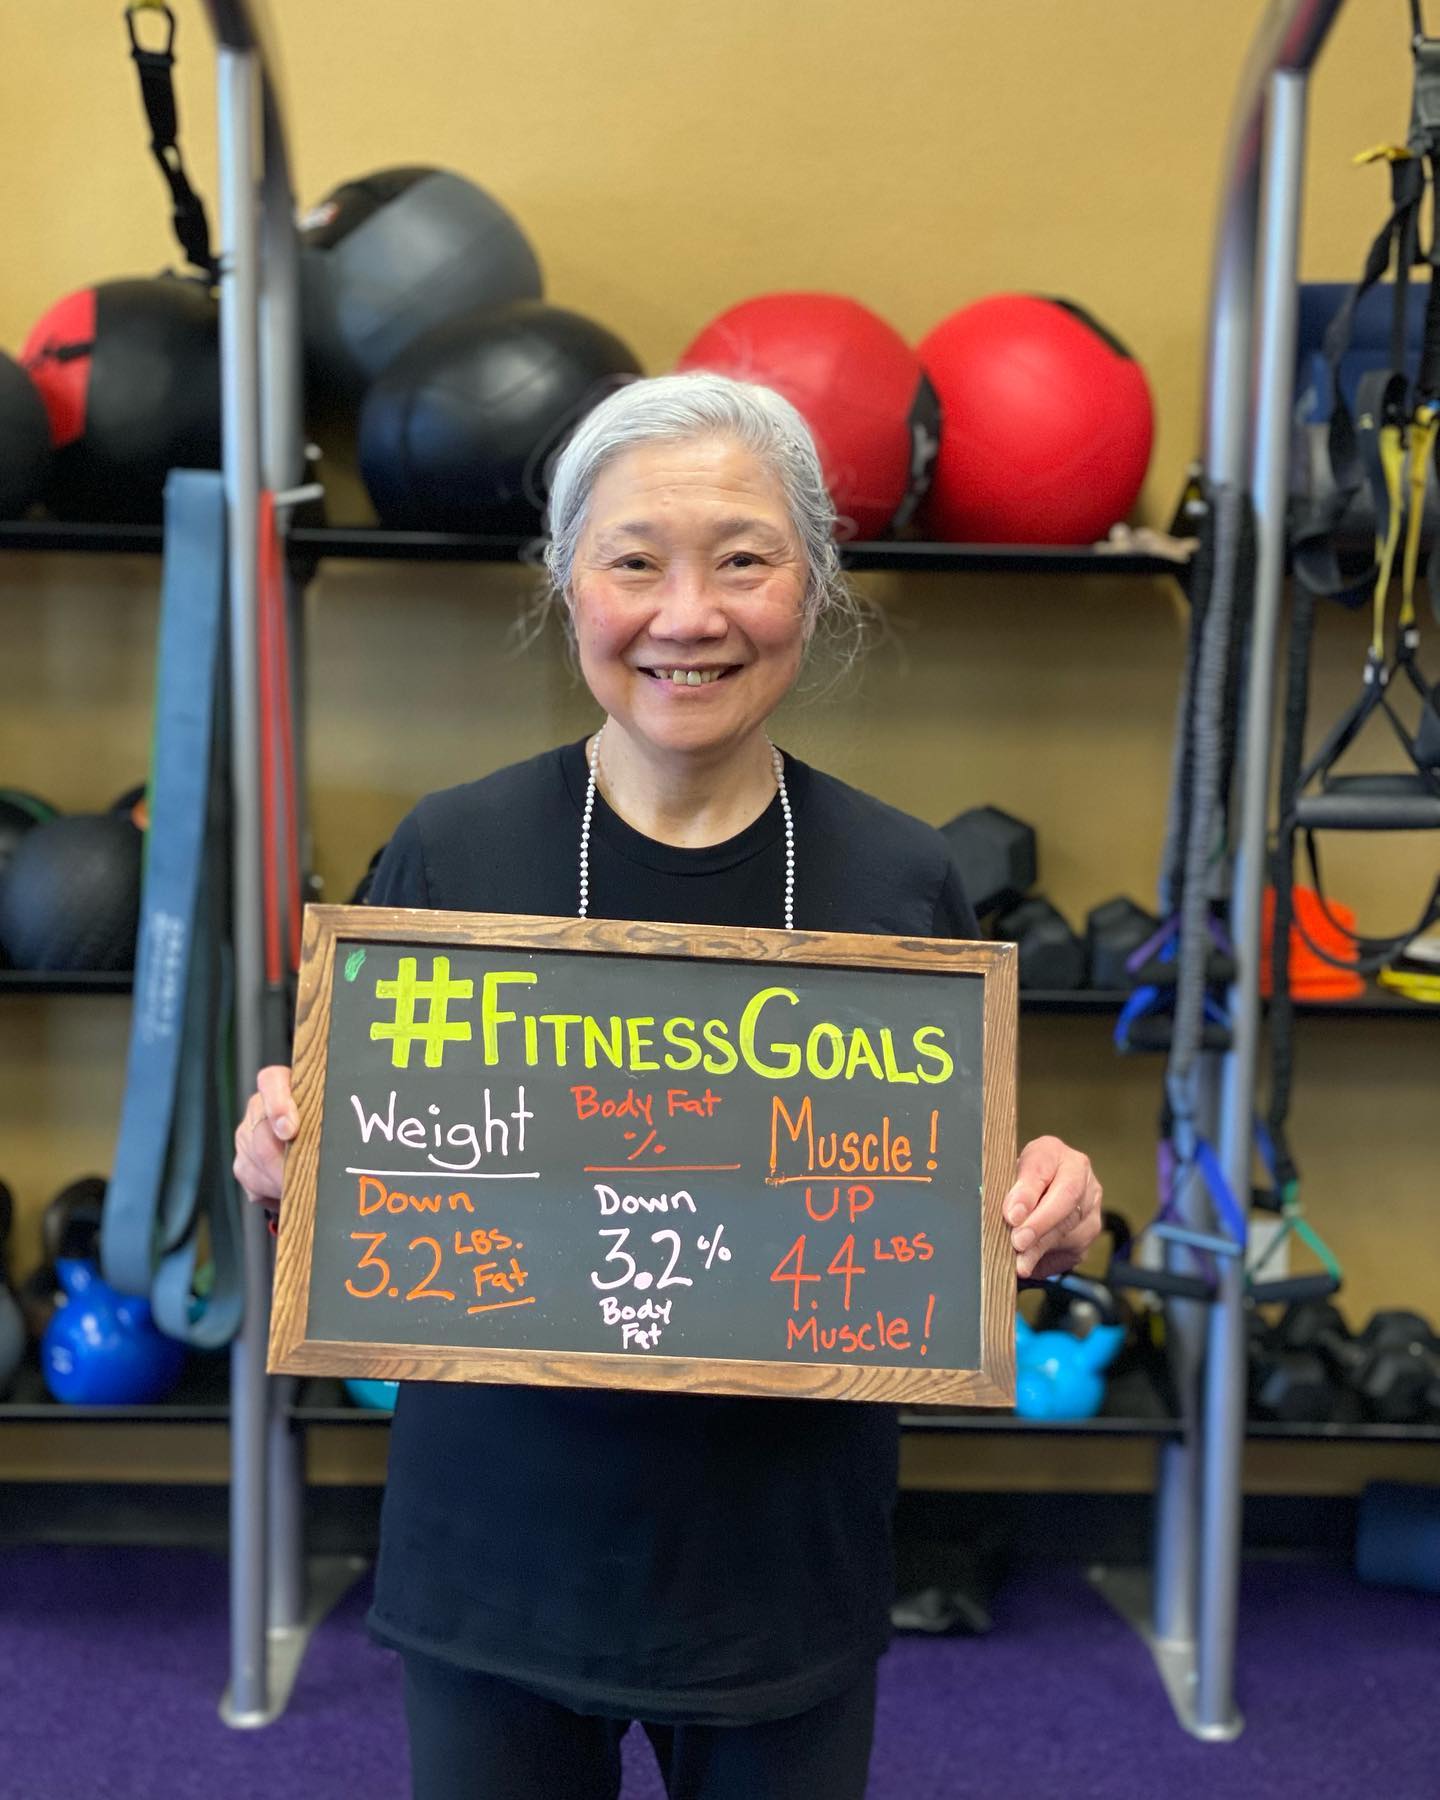 #FITNESSGOALS
Weight
Down
3.2 LBS.
Fat
Body Fat
%
Down
3.2%
Body
Fat
Muscle!
UP
4.4 LBS
Muscle!